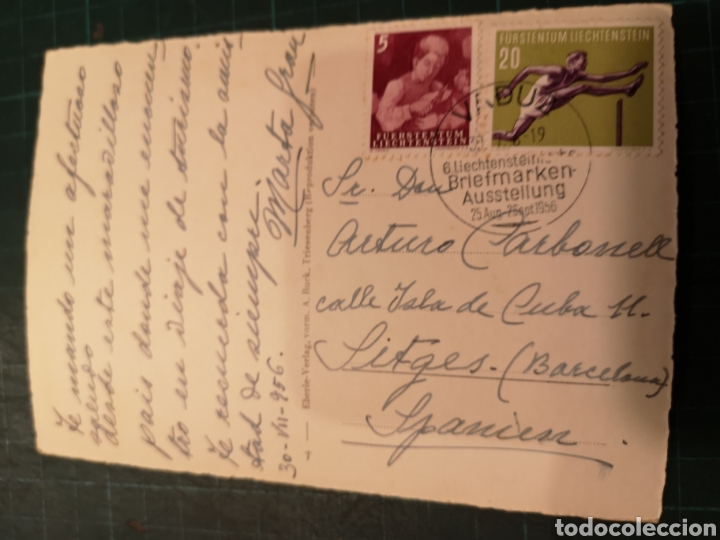 Te mando un afectuoso
saludo
desde este maravilloso
pais donde me encuen-
tro en viaje de turismo.
Te recuerda con la amis-
tad de siempre
Marta Grau
30-VII-956.
Eberle-Verlag, vorm. A. Buck, Triesenberg (Reproduktion verboten)
5
FUERSTENTUM
LIECHTENSTEIN
FÜRSTENTUM LIECHTENSTEIN
20
VADUZ
6. Liechtenstein.
Briefmarken-
Ausstellung
25. Aug.-2. Sept. 1956
Sr. Don
Arturo Carbonell
calle Isla de Cuba 11-
Sitges-(Barcelona)
Spanien.
todocoleccion